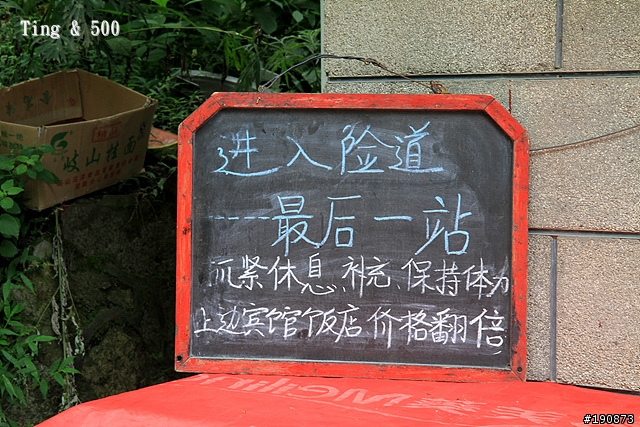 Ting & 500
岐山挂面
进入险道
----最后一站
爪紧休息、补充、保持体力
上边宾馆饭店价格翻倍
#190873